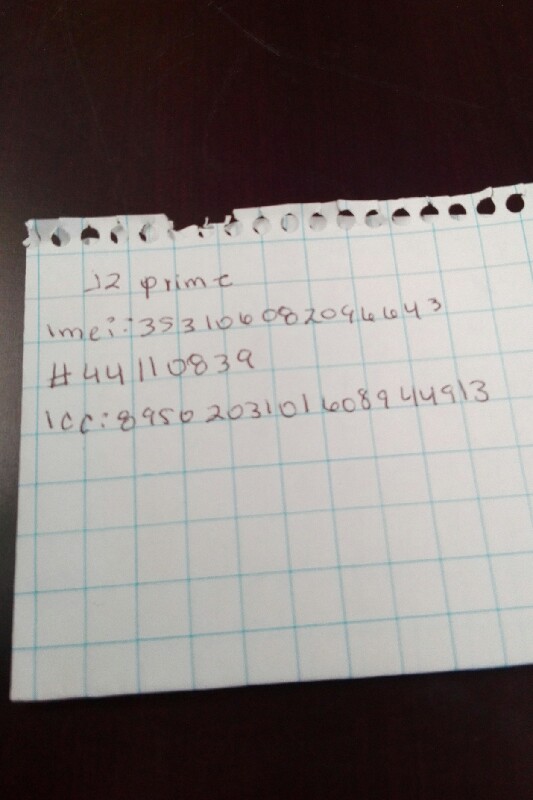 J2 prime
Imei: 353106082096643
#44110839
Icc: 8950203101608944913